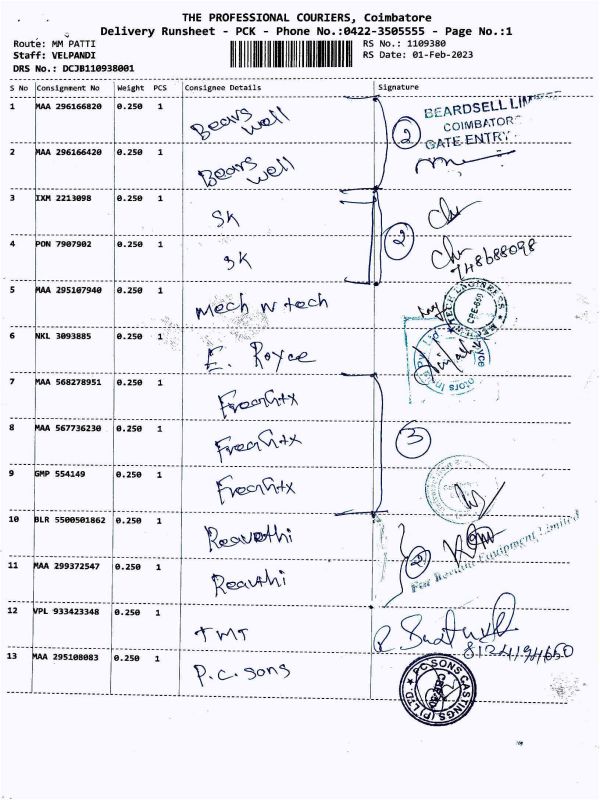 THE PROFESSIONAL COURIERS, Coimbatore
Delivery Runsheet - PCK - Phone No.:0422-3505555 - Page No.:1
Route: MM PATTI RS No.: 1109380
Staff: VELPANDI RS Date: 01-Feb-2023
DRS No.: DCJB110938001
S No Consignment No Weight PCS Consignee Details Signature
1 MAA 296166820 0.250 1 Bears well
2 MAA 296166420 0.250 1 Bears well
2
BEARDSELL LIMITED
COIMBATORE
GATE ENTRY
3 IXM 2213098 0.250 1 SK
4 PON 7907902 0.250 1 SK
2
5 MAA 295107940 0.250 1 Mech N tech
6 NKL 3093885 0.250 1 E. Royce
7 MAA 568278951 0.250 1
8 MAA 567736230 0.250 1
3
9 GMP 554149 0.250 1
10 BLR 5500501862 0.250 1 Reavathi
11 MAA 299372547 0.250 1 Reavthi
2
Equipment Limited
12 VPL 933423348 0.250 1 TMT
8124194650
13 MAA 295108083 0.250 1 P.C. Sons
P.C.SONS CASTINGS (P) LTD
CBE